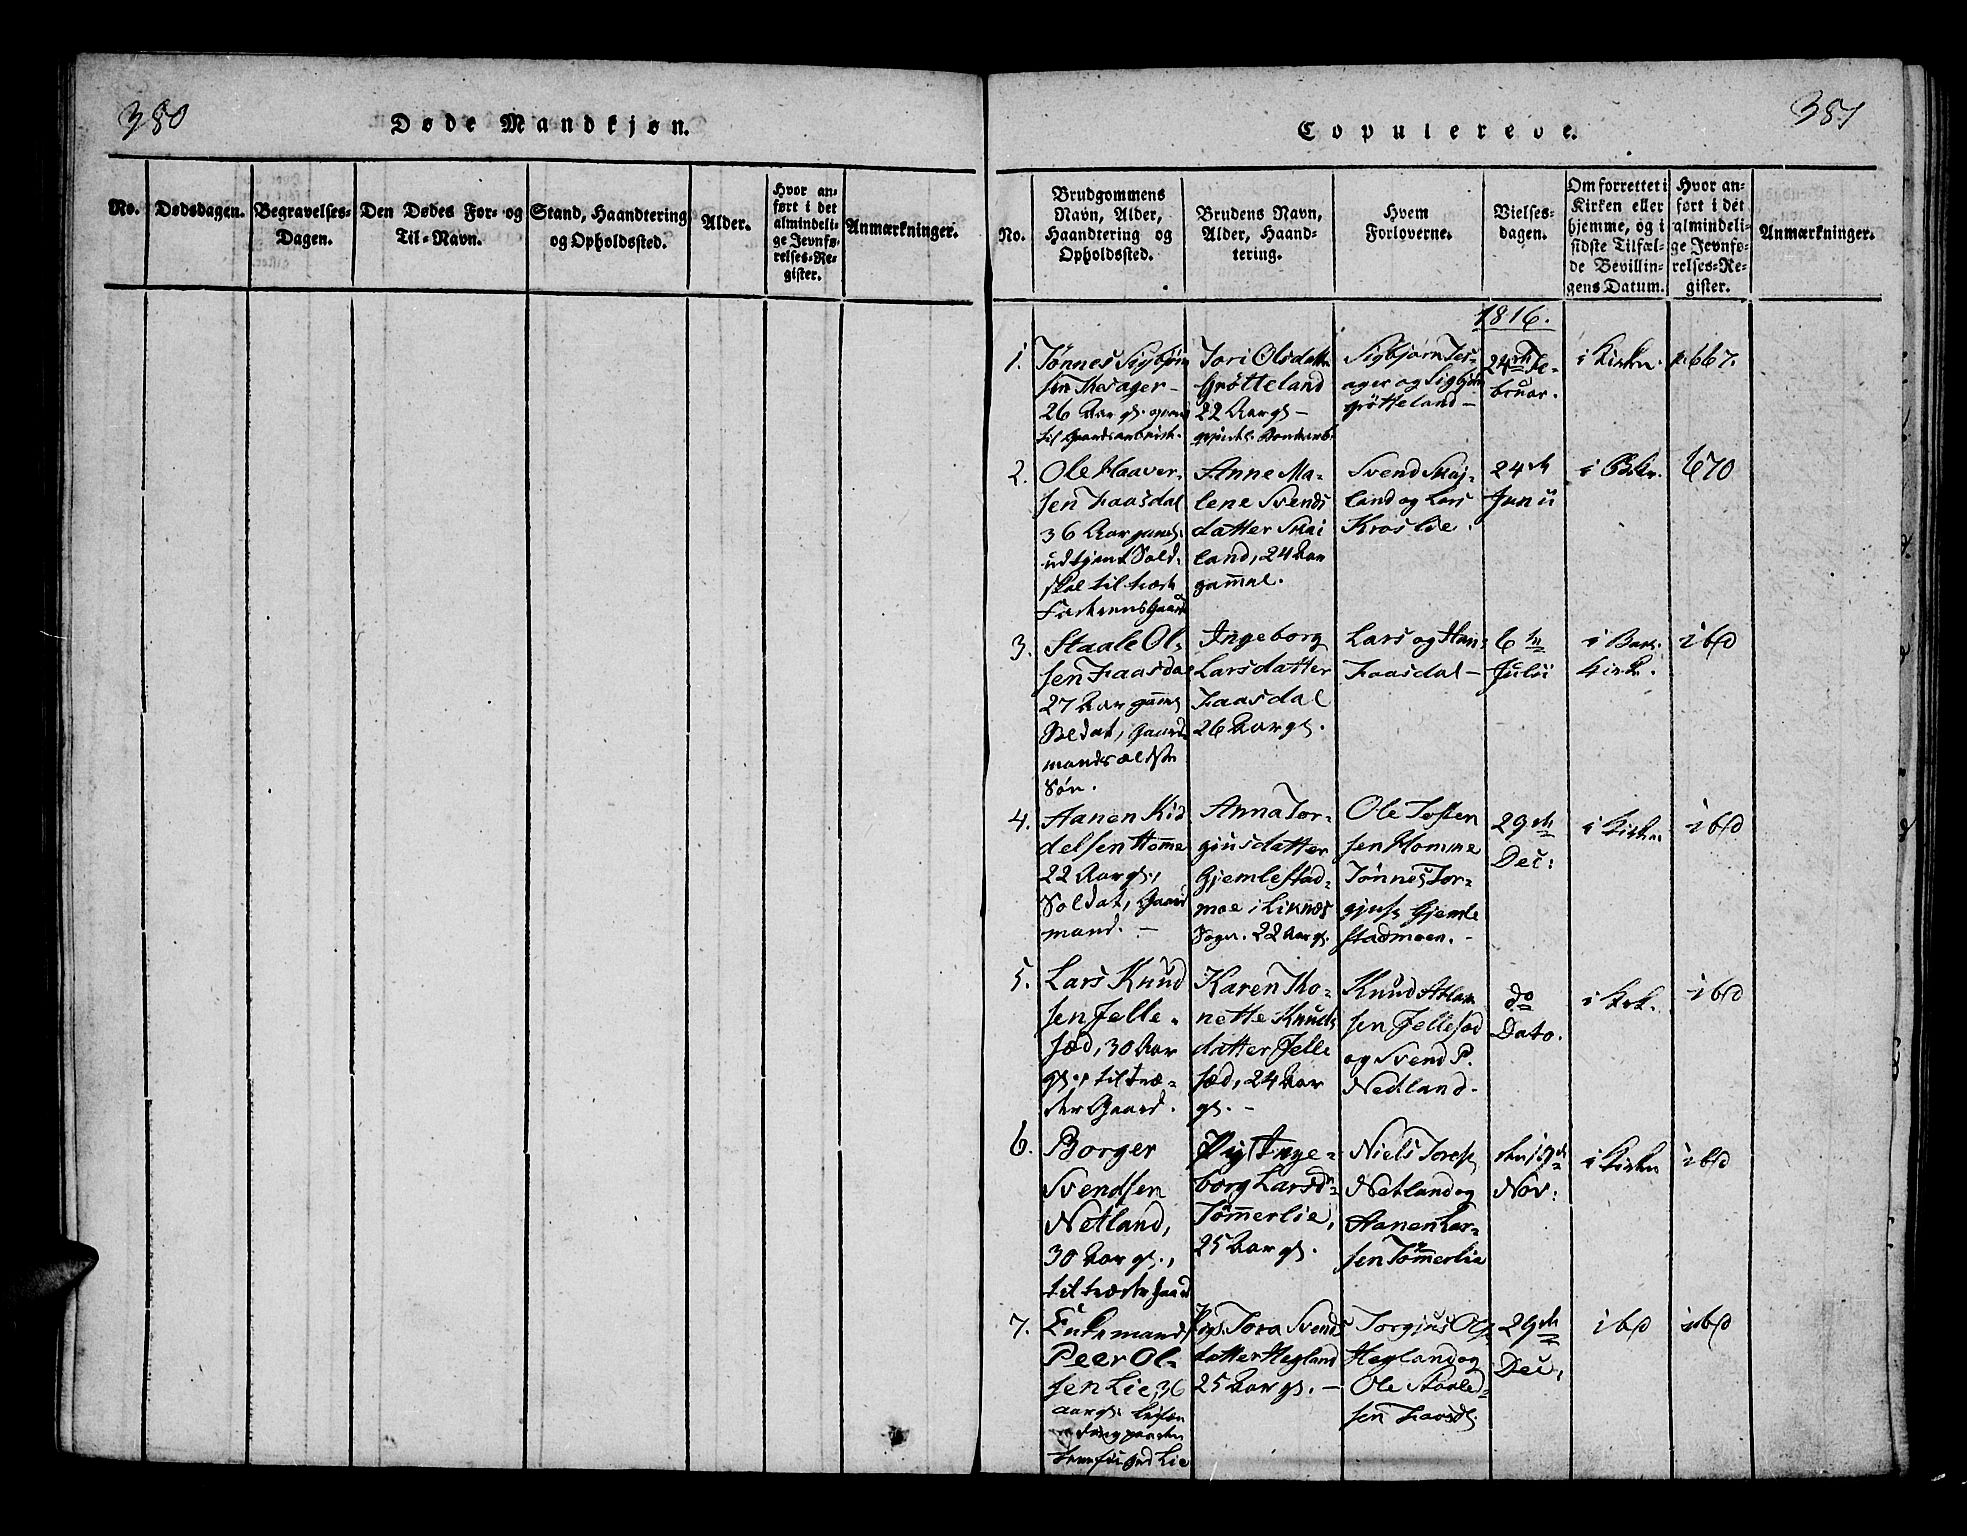 380
Døde Mandkjøn.
No.
Dødsdagen.
Begravelses-
Dagen.
Den Dødes For- og
Til-Navn.
Stand, Haandtering
og Opholdssted.
Alder.
Hvor an-
ført i det
almindeli-
ge Jevnfø-
relses-Re-
gister.
Anmærkninger.
381
Copulerede.
No.
Brudgommens
Navn, Alder,
Haandtering og
Opholdssted.
Brudens Navn,
Alder, Haand-
tering.
Hvem
Forloverne.
Vielses-
dagen.
Om forrettet i
Kirken eller
hjemme, og i
sidste Tilfæl-
de Bevillin-
gens Datum.
Hvor an-
ført i det
almindeli-
ge Jevnfø-
relses-Re-
gister.
Anmærkninger.
1816.
1.
Tønnes Sigbjørn
sen Tesager -
26 Aar gl.
Tori Olsdatter
Grøtteland
22 Aar gl -
Sigbjørn Tes-
ager og Sigbjørn
Grøtteland -
24de Fe-
bruar.
i Kirken.
p. 667.
2.
Ole Haaver-
sen Faasdal
36 Aar gaml.
udtjent Sold.
skal til træde
Faderens Gaard
Anne Ma-
lene Svends
datter Skai
land, 24 Aar
gam̄el.
Svend Skaj-
land og Lars
Kroslie.
24de
Junii
i Kirk.
670
3.
Staale Ol-
sen Faasdal
27 Aar gaml
Soldat, Gaard
mands ældste
Søn.
Ingeborg
Larsdatter
Faasdal
26 Aar gl.
Lars og Han.
Faasdal -
6te
Julii
i Bak.
Kirk.
ibd
4.
Aanen Kid
delsen Hom̄e
22 Aar gl.,
Soldat, Gaard
mand. -
Anna Tor-
giusdatter
Gjemlestad-
moe i Liknæs
Sogn. 22 Aar gl.
Ole Tosten
sen Homme
Tønnes Tor-
gjus. Gjemle
stadmoen. -
29de
Dec:
i Kirken.
ibd
5.
Lars Knud
sen Jelle-
sæd, 30 Aar
gl., tiltræ-
der Gaard.
Karen Tho-
nette Knuds
datter Jelle
sæd, 24 Aar
gl. -
Knud Atlan
sen Jellesæd
og Svend P.
Nedland.
do
Dato.
i Kirk.
ibd
6.
Borger
Svendsen
Netland,
30 Aar gl.,
tiltræder Gaard
Pig. Inge-
borg Larsdr
Tøm̄erlie,
25 Aar gl.
Niels Tores.
Netland og
Aanen Lar-
sen Tøm̄erlie
Nov:
i Kirken
ibd
7.
Enkemand
Peer Ol-
sen Lie, 36
Aar gl.
Lie
Pig. Tora Svends
datter Hegland
25 Aar gl. -
Torgius Ols.
Hegland og
Ole Staale-
sen Faasdl.
29de
Dec.
ibd
ibd